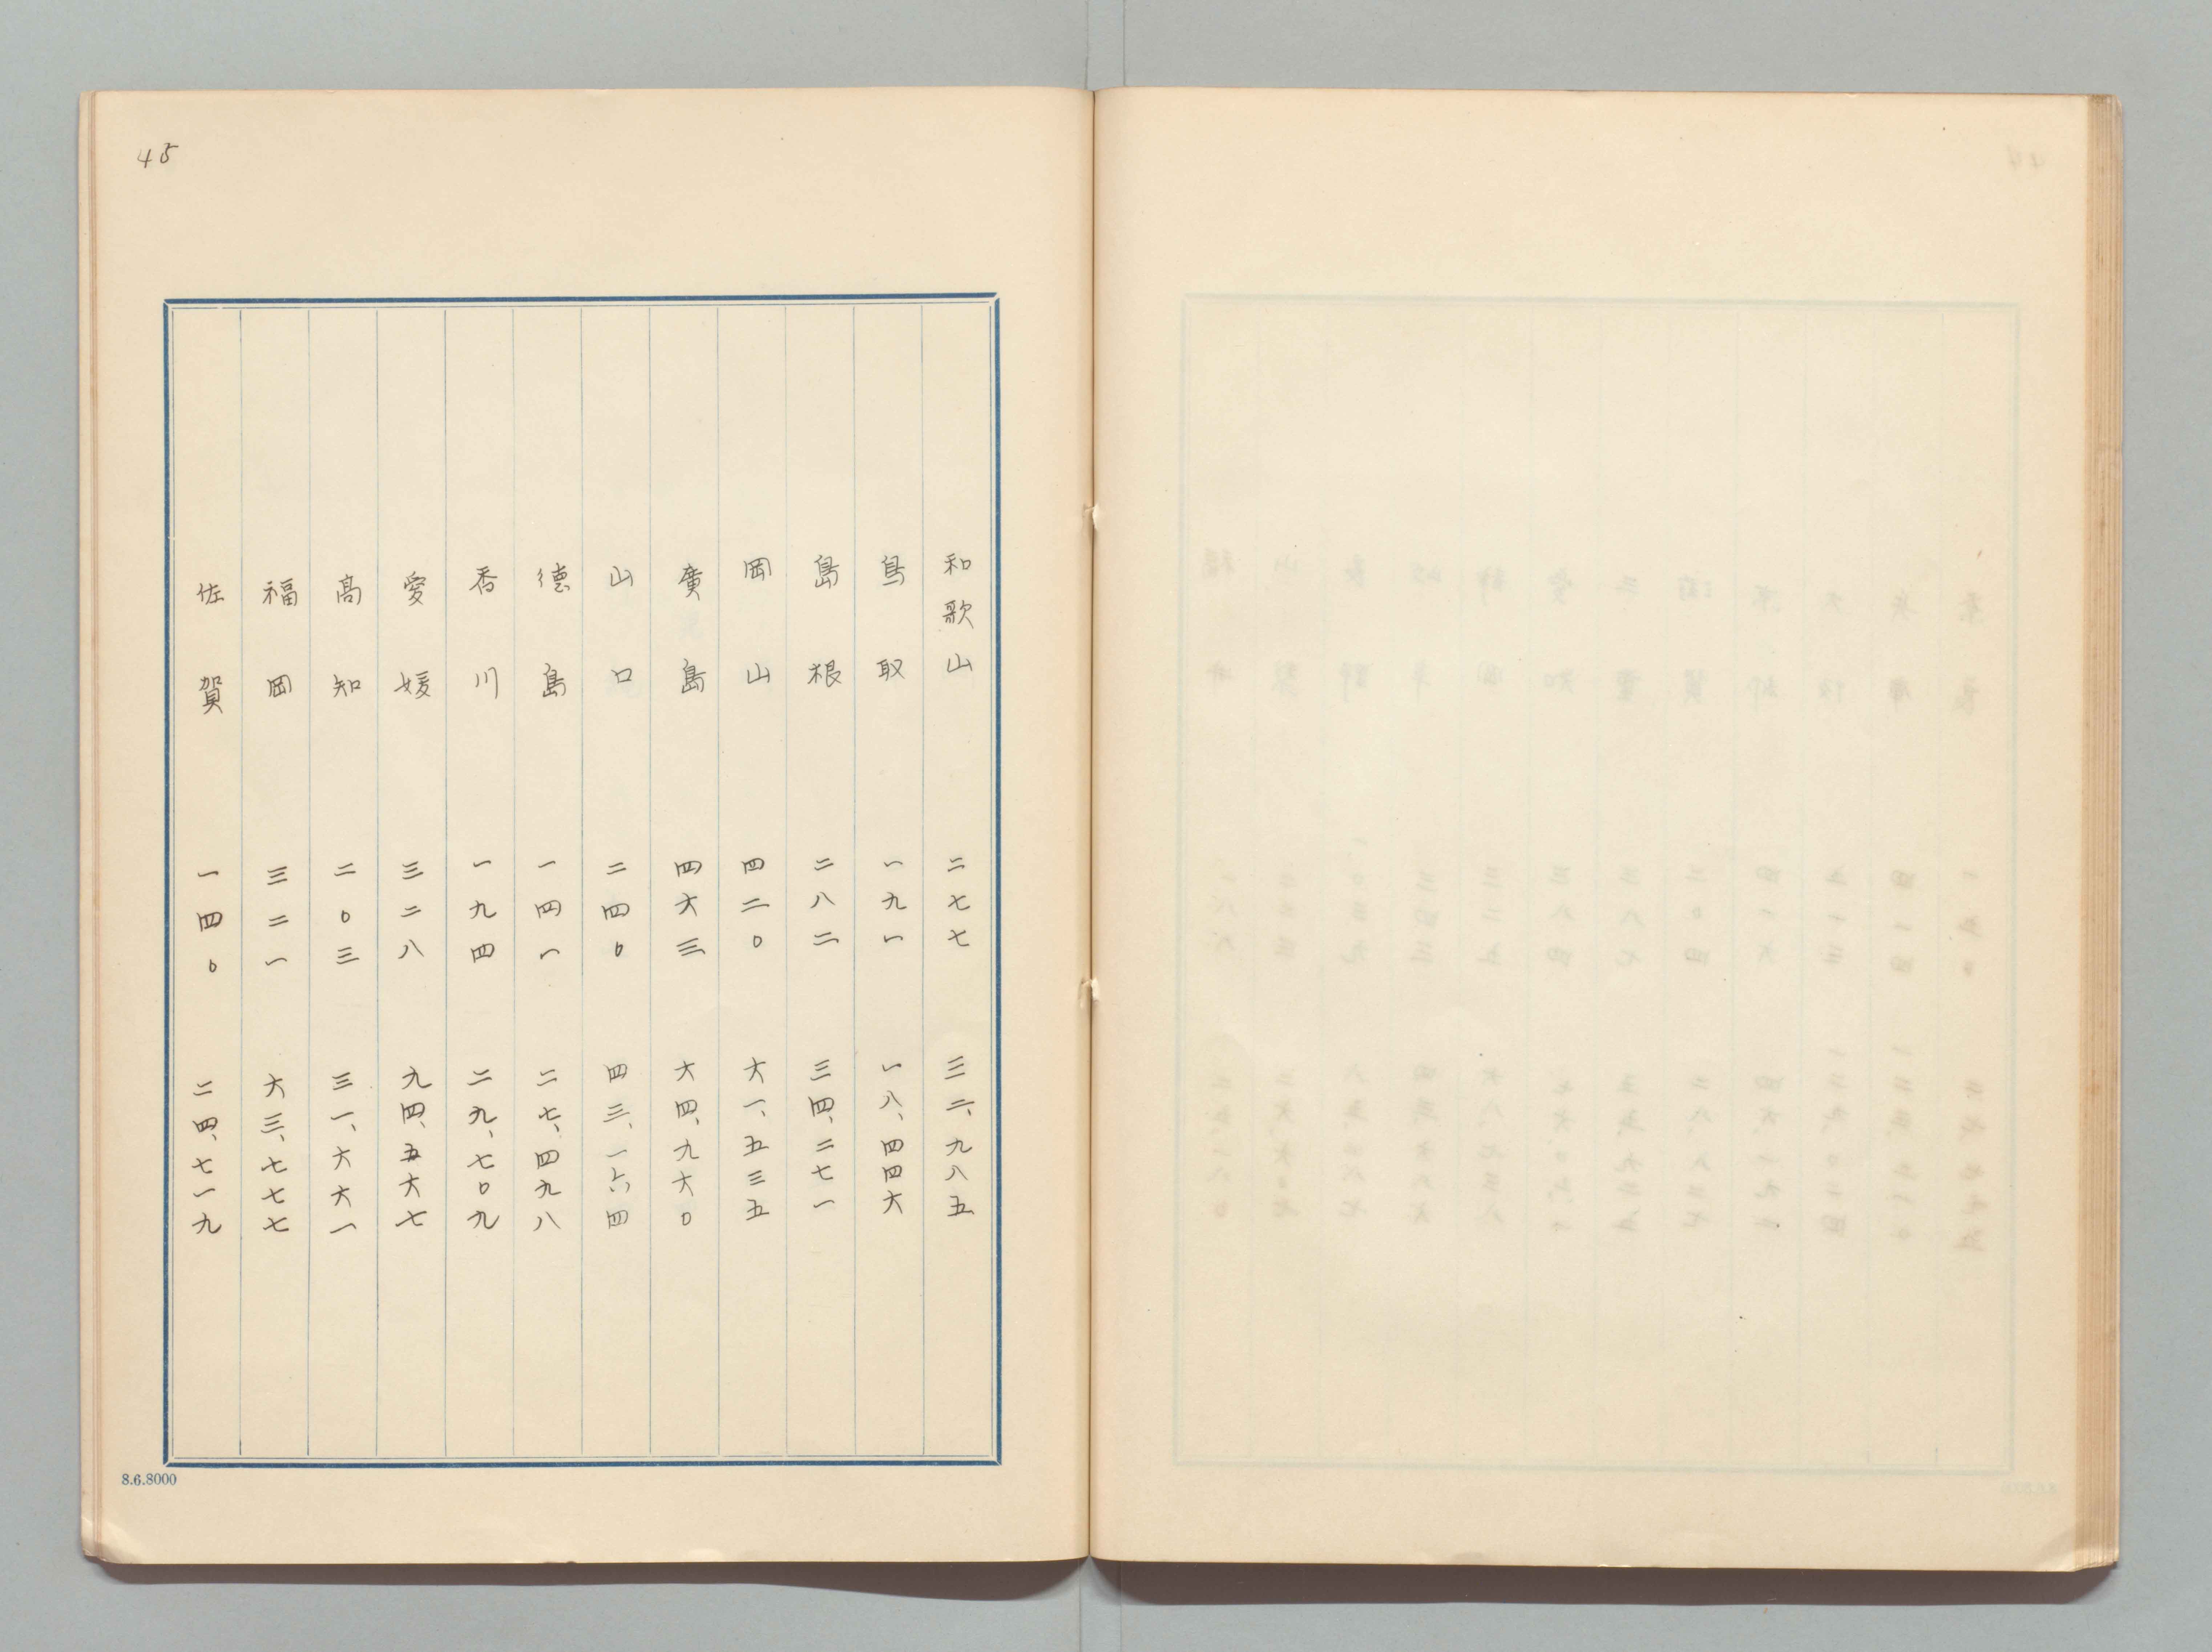 45
和歌山 二七七 三二、九八五
鳥取 一九一 一八、四四六
島根 二八二 三四、二七一
岡山 四二〇 六一、五三五
廣島 四六三 六四、九六〇
山口 二四〇 四三、一六四
徳島 一四一 二七、四九八
香川 一九四 二九、七〇九
愛媛 三二八 九四、五六七
高知 二〇三 三一、六六一
福岡 三二一 六三、七七七
佐賀 一四〇 二四、七一九
8.6.8000